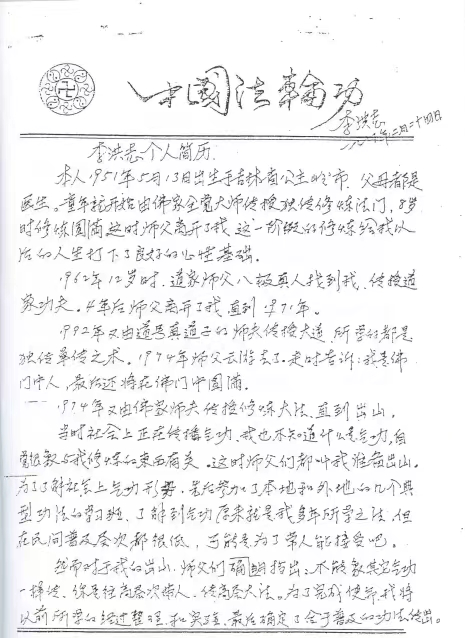 中國法輪功
李洪志
李洪志个人简历.
本人1951年5月13日出生于吉林省公主岭市，父母都是
医生。童年就开始由佛家全觉大师传授独传修炼法门，8岁
时修炼圆满这时师父离开了我。这一阶段的修炼给我以
后的人生打下了良好的心性基础。
1962年12岁时，道家师父八极真人找到我，传授道
家功夫。4年后师父离开了我，直到1971年。
又由道号真道子的师夫传授大道，所学的都是
独传单传之术。1974年师父云游去了，走时告诉：我是佛
门中人，最后还将在佛门中圆满。
1974年又由佛家师夫传授修炼大法，直到出山。
当时社会上正在传播气功，我也不知道什么是气功，自
我修炼的东西有关。这时师父们都叫我准备出山。
为了了解社会上气功形势，先后参加了本地和外地的几个典
型功法的学习班，了解到气功原来就是我多年所学之法，但
在民间普及层次都很低，可能是为了常人能接受吧。
然而对于我的出山，师父们明确指出：不能教其它气功
一样传，你是往高层次带人，传高层大法。为了完成使命，我将
以前所学的经过整理，和实践，最后确定了合于普及的功法传出。